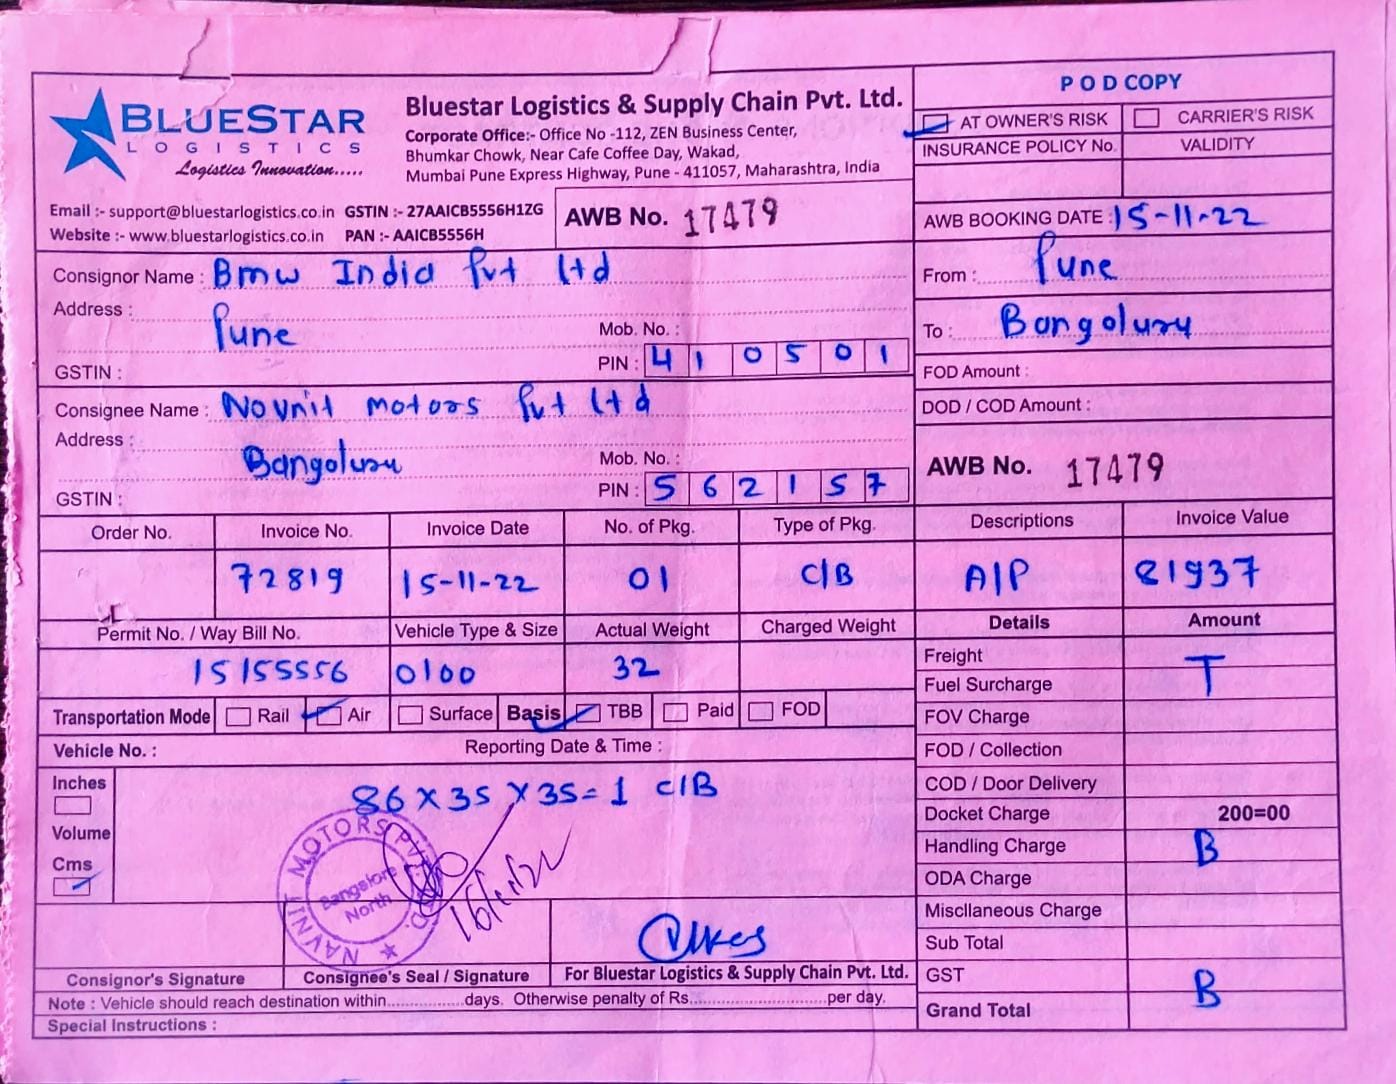 BLUESTAR
LOGISTICS
Logistics Innovation.....
Bluestar Logistics & Supply Chain Pvt. Ltd.
Corporate Office:- Office No -112, ZEN Business Center,
Bhumkar Chowk, Near Cafe Coffee Day, Wakad,
Mumbai Pune Express Highway, Pune - 411057, Maharashtra, India
Email :- support@bluestarlogistics.co.in GSTIN :- 27AAICB5556H1ZG
Website :- www.bluestarlogistics.co.in PAN :- AAICB5556H
AWB No. 17479
POD COPY
AT OWNER'S RISK CARRIER'S RISK
INSURANCE POLICY No. VALIDITY
AWB BOOKING DATE : 15-11-22
From : Pune
To : Bangoluru
FOD Amount :
DOD / COD Amount :
AWB No. 17479
Consignor Name : Bmw India Pvt Ltd
Address :
Pune
Mob. No. :
GSTIN : PIN : 410501
Consignee Name : Novnit motors Pvt Ltd
Address :
Bangoluru
Mob. No. :
GSTIN : PIN : 562157
Order No. Invoice No. Invoice Date No. of Pkg. Type of Pkg. Descriptions Invoice Value
72819 15-11-22 01 C/B A/P 81937
Permit No. / Way Bill No. Vehicle Type & Size Actual Weight Charged Weight
15155556 0100 32
Transportation Mode Rail Air Surface Basis TBB Paid FOD
Vehicle No. : Reporting Date & Time :
Inches
Volume
Cms
86 X 35 X 35 = 1 C/B
NAVNIT MOTORS PVT. LTD.
Bangalore
North
16/11/22
Consignor's Signature Consignee's Seal / Signature For Bluestar Logistics & Supply Chain Pvt. Ltd.
Note : Vehicle should reach destination within..................days. Otherwise penalty of Rs................................per day.
Special Instructions :
Details Amount
Freight
T
Fuel Surcharge
FOV Charge
FOD / Collection
COD / Door Delivery
Docket Charge 200=00
Handling Charge B
ODA Charge
Miscllaneous Charge
Sub Total
GST
B
Grand Total